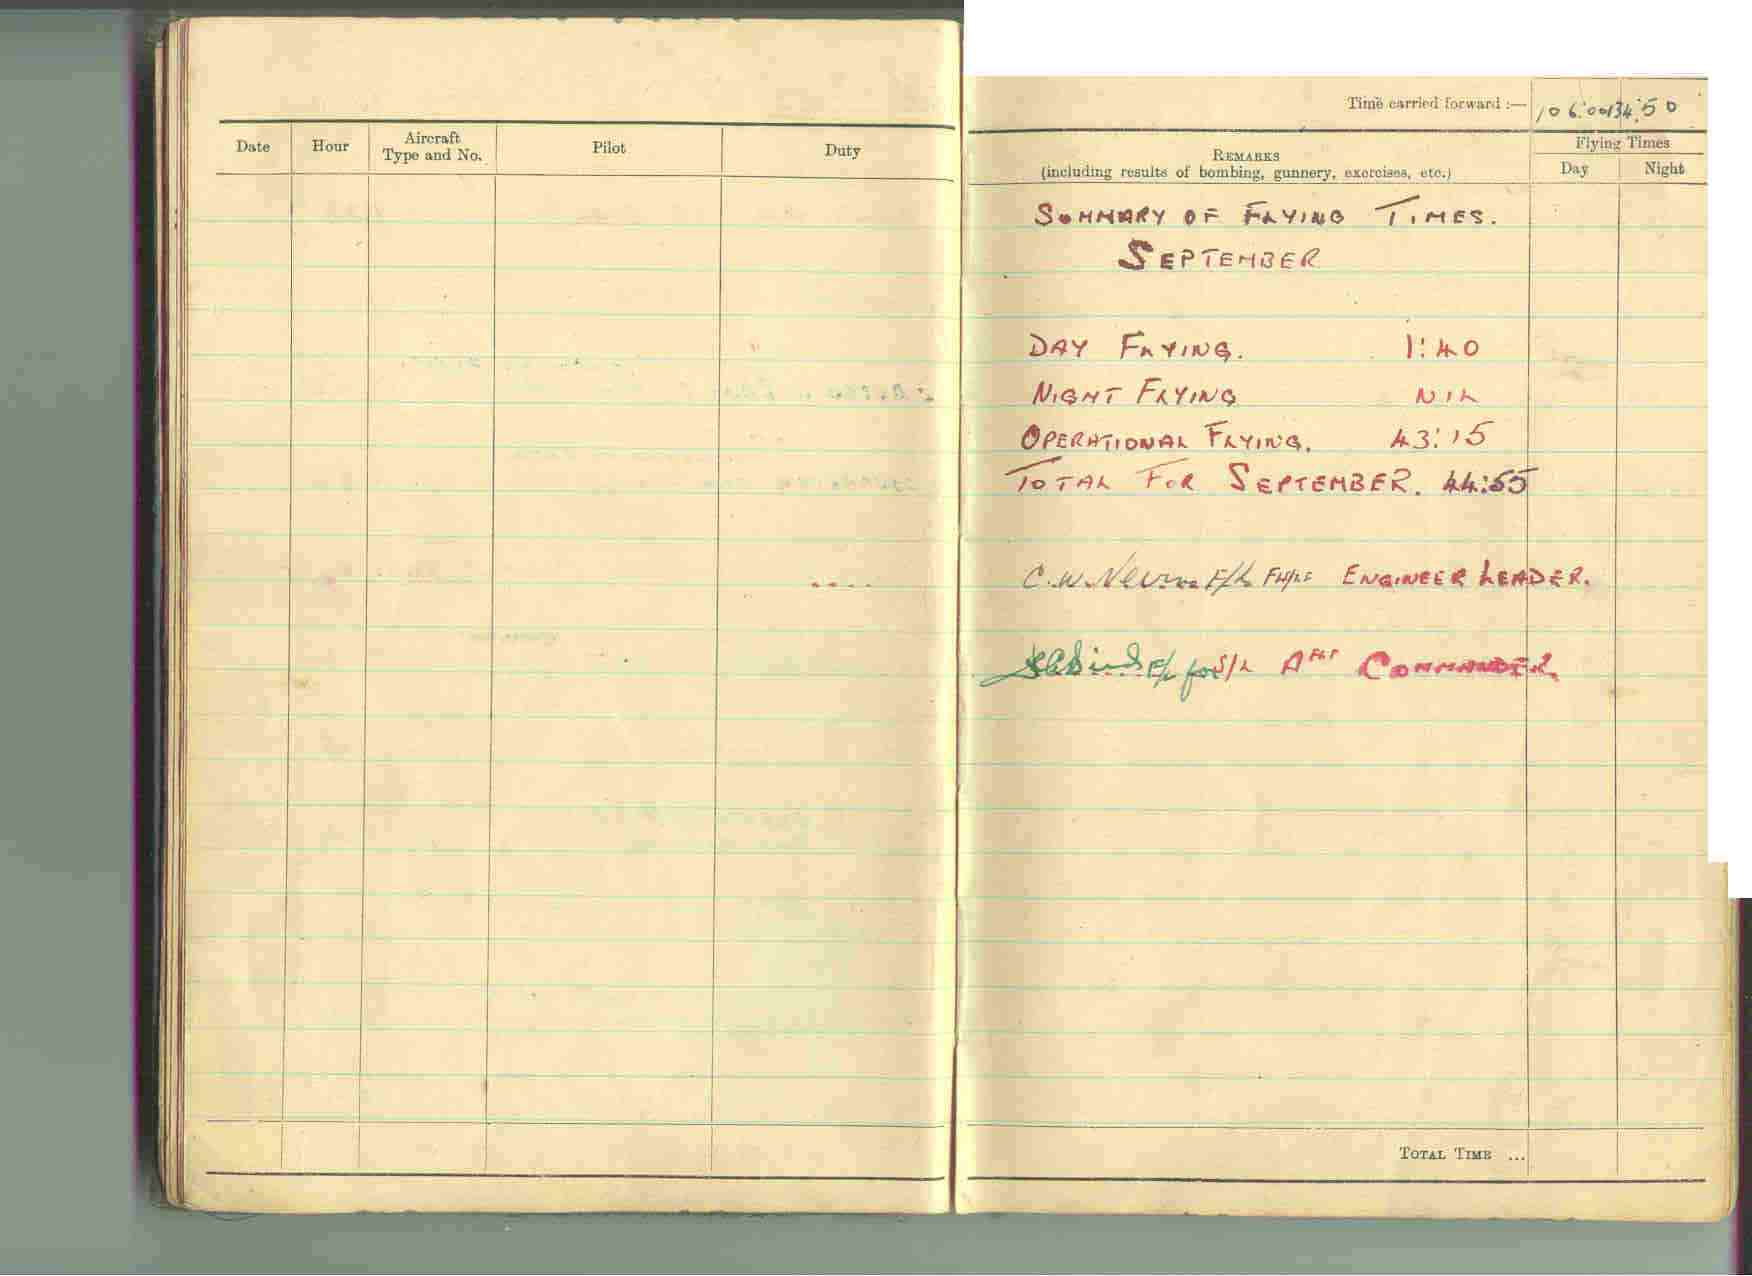 Date Hour Aircraft Type and No. Pilot Duty
Time carried forward :— 106:00 134:50
REMARKS
(including results of bombing, gunnery, exercises, etc.)
Flying Times
Day Night
SUMMARY OF FLYING TIMES.
SEPTEMBER
DAY FLYING. 1:40
NIGHT FLYING NIL
OPERATIONAL FLYING. 43:15
TOTAL FOR SEPTEMBER. 44:55
C.W. F/L ENGINEER LEADER.
F/L for S/L A FLT COMMANDER.
TOTAL TIME ...